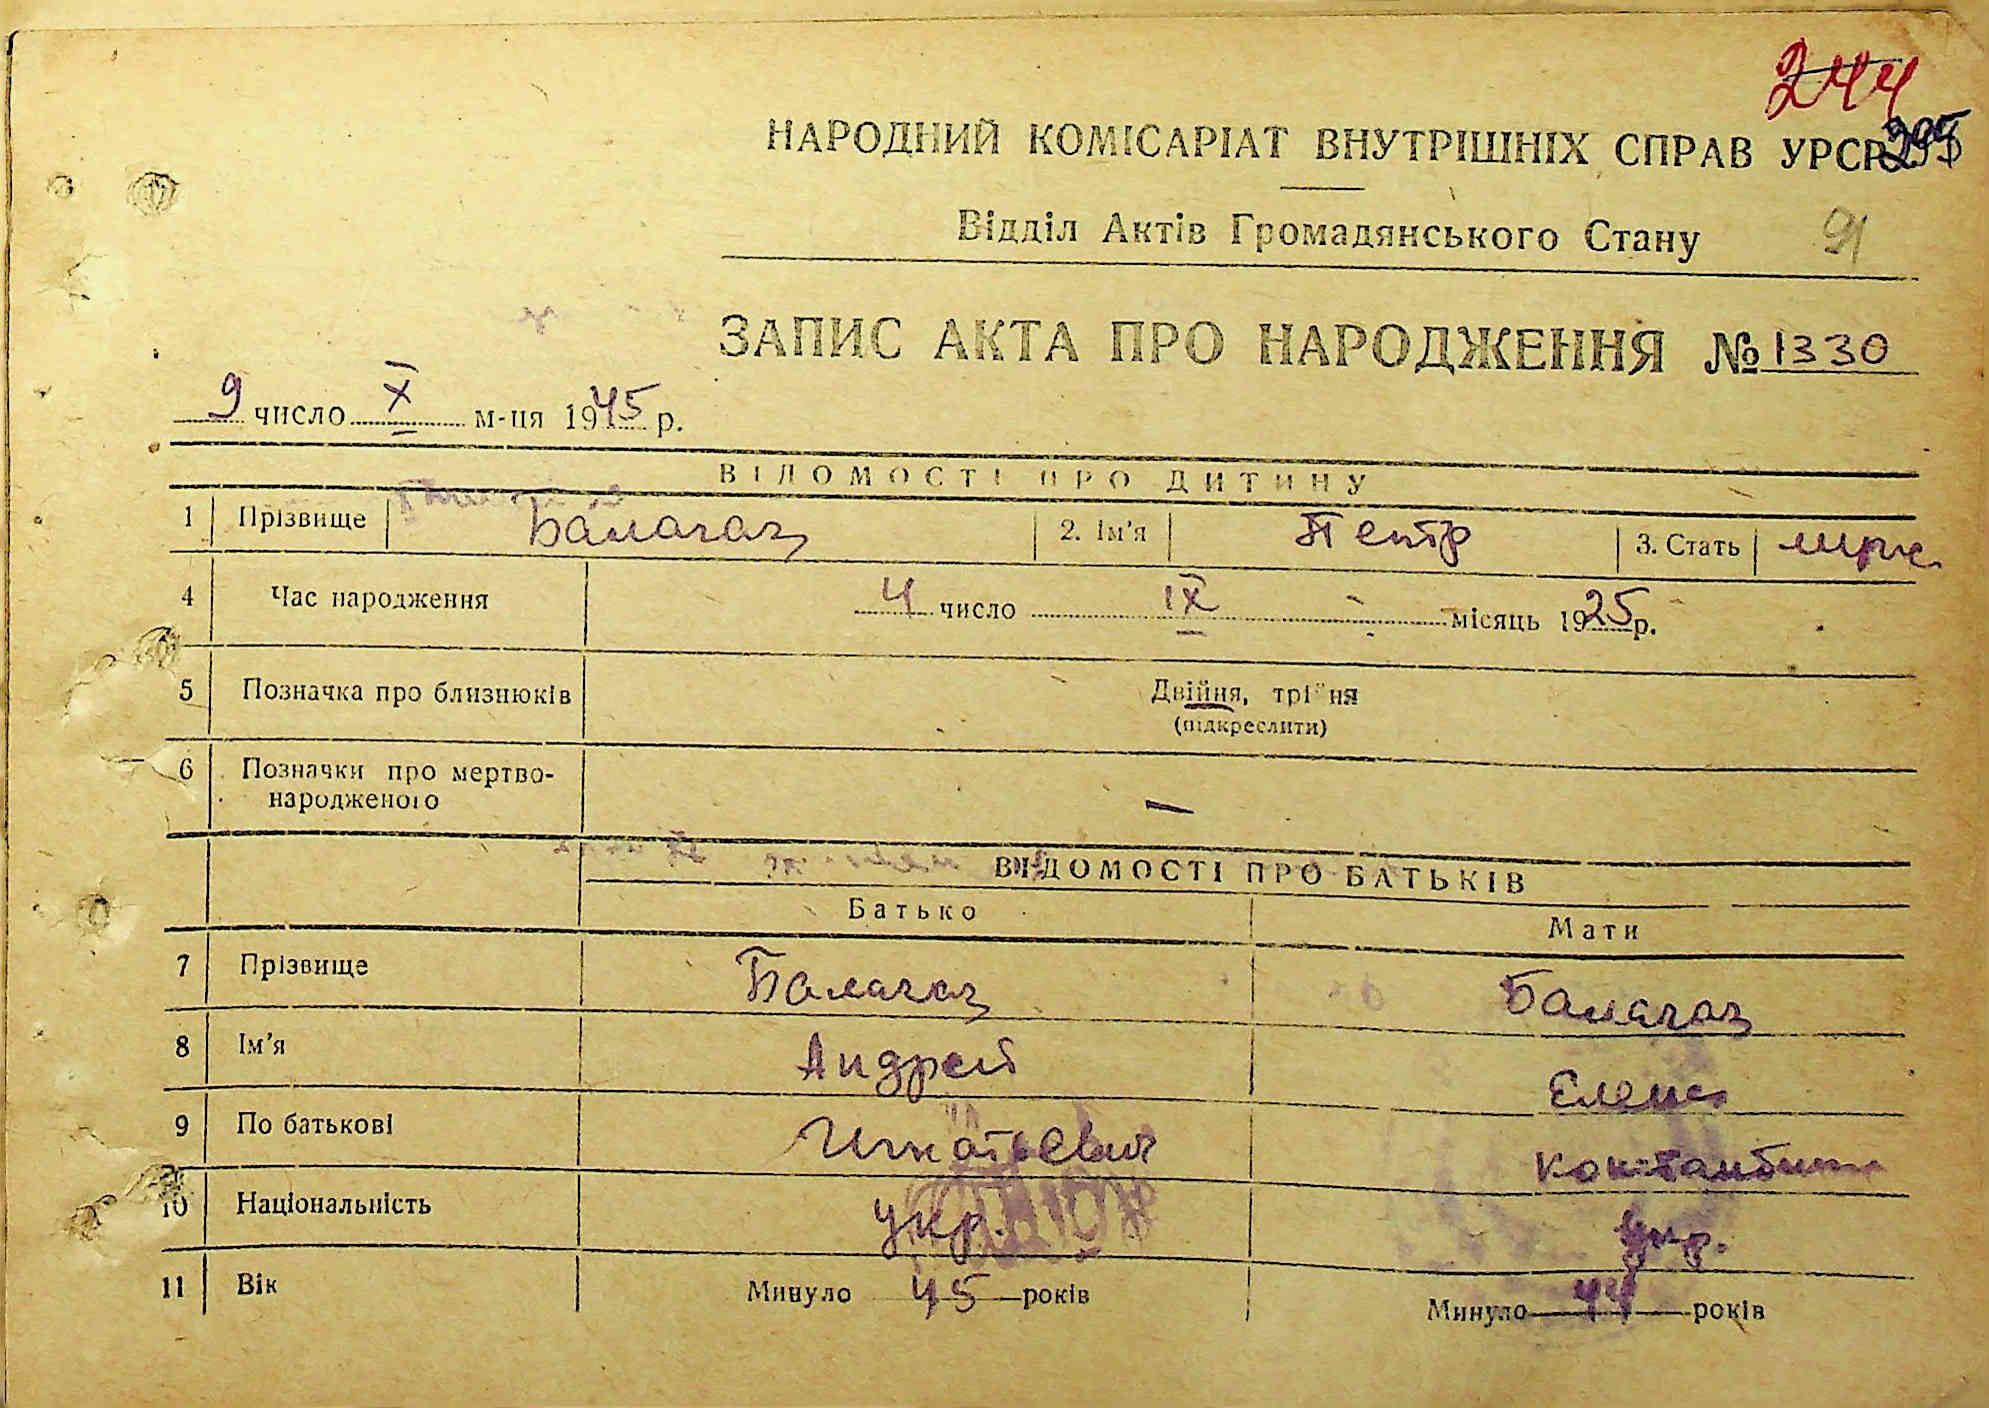 244
295
НАРОДНИЙ КОМІСАРІАТ ВНУТРІШНІХ СПРАВ УРСР
Відділ Актів Громадянського Стану 91
ЗАПИС АКТА ПРО НАРОДЖЕННЯ № 1330
9 число X м-ця 1945 р.
ВІДОМОСТІ ПРО ДИТИНУ
1 Прізвище Балагаз 2. Ім'я Петр 3. Стать муж.
4 Час народження 4 число IX місяць 1925 р.
5 Позначка про близнюків Двійня, трійня
(підкреслити)
6 Позначки про мертво-
народженого —
ВІДОМОСТІ ПРО БАТЬКІВ
Батько Мати
7 Прізвище Балагаз Балагаз
8 Ім'я Андрей Елена
9 По батькові Игнатьевич
10 Національність укр. укр.
11 Вік Минуло 45 років Минуло 44 років